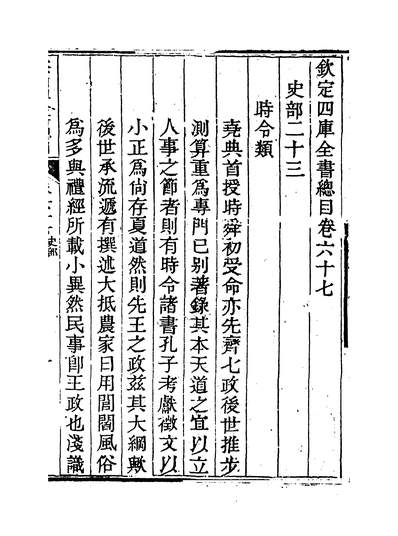 欽定四庫全書總目卷六十七
史部二十三
時令類
堯典首授時舜初受命亦先齊七政後世推步
測算重為專門已别著錄其本天道之宜以立
人事之節者則有時令諸書孔子考獻徵文以
小正為尚存夏道然則先王之政兹其大綱歟
後世承流遞有撰述大抵農家日用閭閻風俗
為多與禮經所載小異然民事即王政也淺識